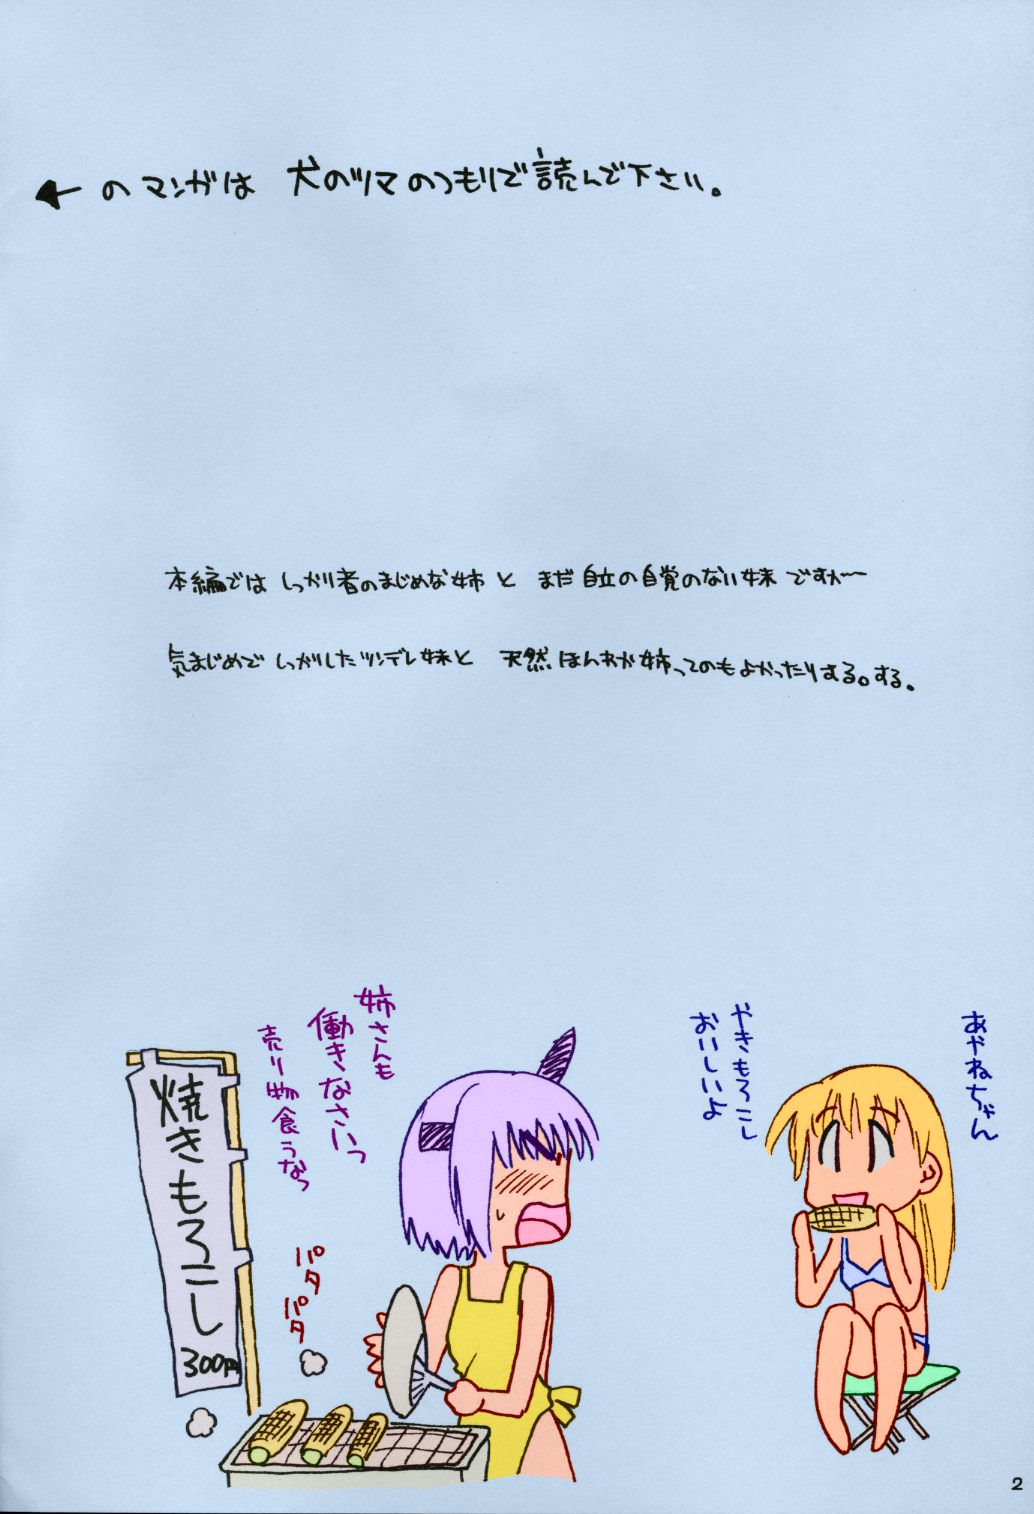 ← のマンガは 犬のツマのつもりで読んで下さい。
本編では しっかり者のまじめな姉と まだ自立の自覚のない妹 ですがー
気まじめで しっかりしたツンデレ妹と 天然ほんわか姉ってのもよかったりする。する。
あやねちゃん
やきもろこし
おいしいよ
姉さんも
働きなさいっ
売り物食うなっ
パタ
パタ
焼きもろこし
300円
2